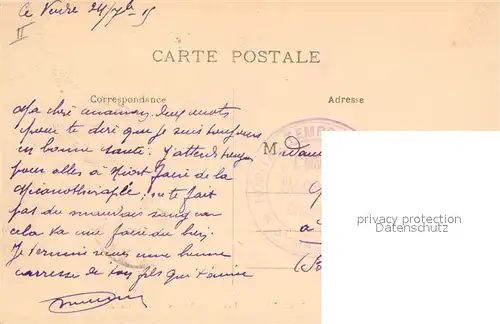 Ce Vendre 24/7bre 15
II
CARTE POSTALE
Correspondance
Adresse
Ma chère maman, deux mots
pour te dire que je suis toujours
en bonne santé. J'attend toujours
pour alles à Niort faire de la
Mécanothérapie. ne te fait
pas du mauvais sang car
cela va me faire du bien.
Je termine avec une bonne
carresse de ton fils qui t'aime
Madame
à
privacy protection
Datenschutz